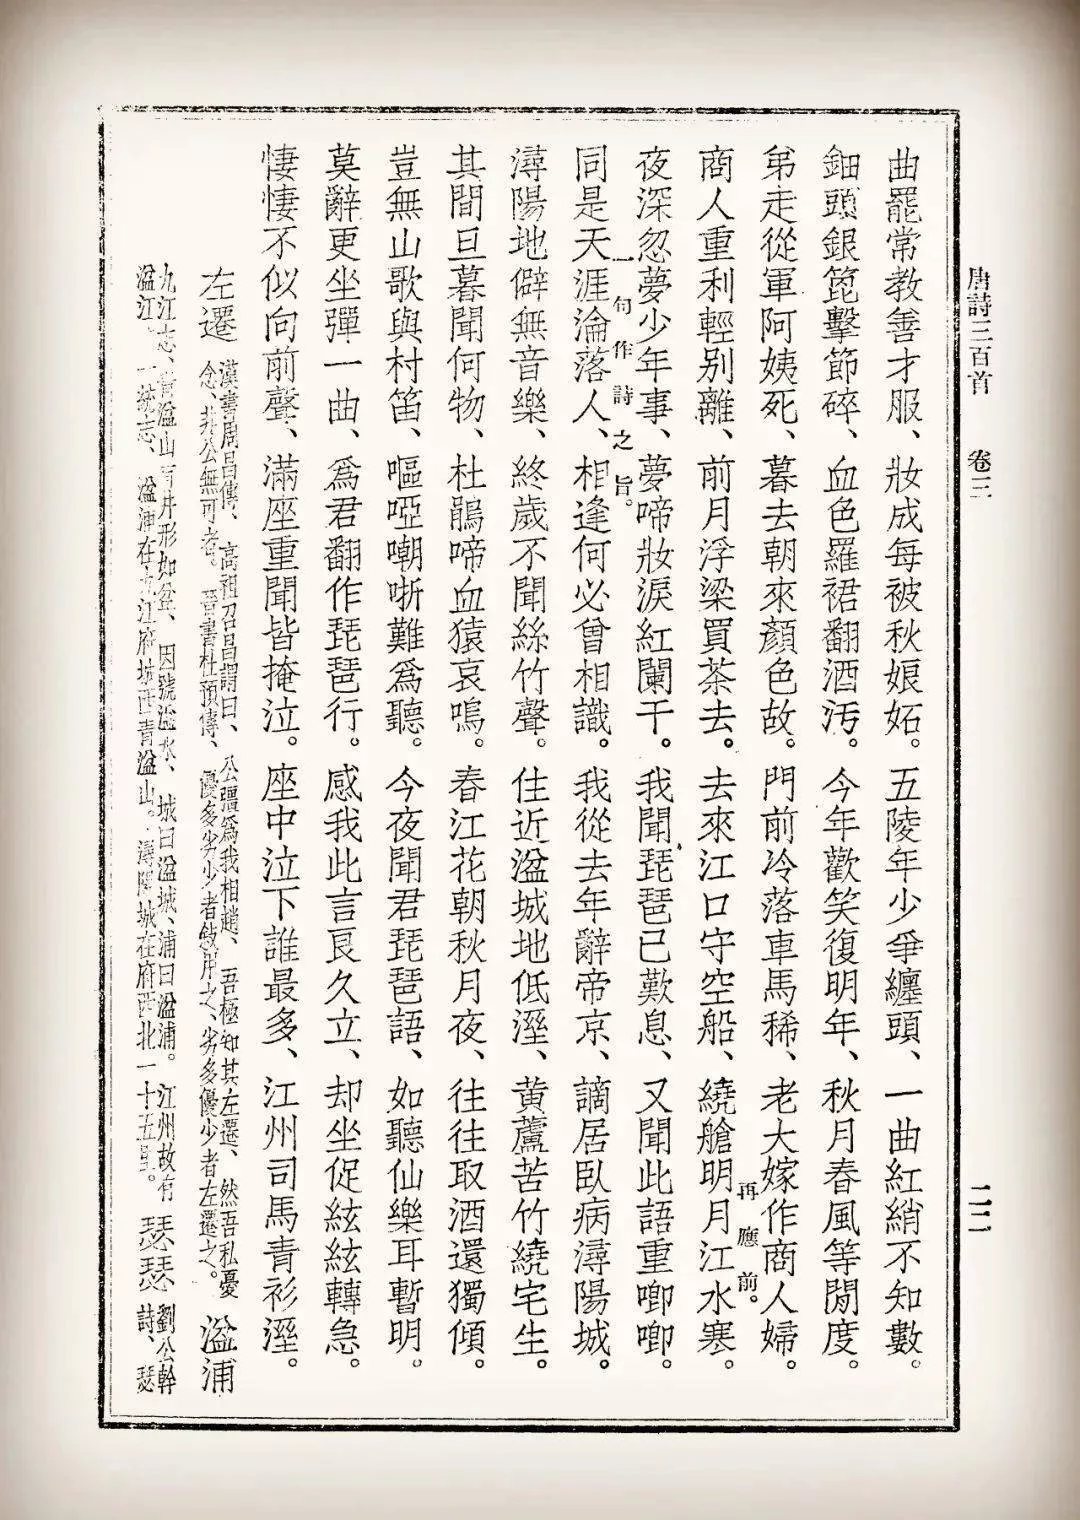 唐詩三百首　卷三　二二
曲罷常教善才服、妝成每被秋娘妬。五陵年少爭纏頭、一曲紅綃不知數。
鈿頭銀篦擊節碎、血色羅裙翻酒汚。今年歡笑復明年、秋月春風等閒度。
弟走從軍阿姨死、暮去朝來顏色故。門前冷落車馬稀、老大嫁作商人婦。
再應前。
商人重利輕別離、前月浮梁買茶去。去來江口守空船、繞艙明月江水寒。
夜深忽夢少年事、夢啼妝淚紅闌干。我聞琵琶已歎息、又聞此語重唧唧。
一句作詩之旨。
同是天涯淪落人、相逢何必曾相識。我從去年辭帝京、謫居臥病潯陽城。
潯陽地僻無音樂、終歲不聞絲竹聲。住近湓城地低溼、黃蘆苦竹繞宅生。
其間旦暮聞何物、杜鵑啼血猿哀鳴。春江花朝秋月夜、往往取酒還獨傾。
豈無山歌與村笛、嘔啞嘲哳難爲聽。今夜聞君琵琶語、如聽仙樂耳暫明。
莫辭更坐彈一曲、爲君翻作琵琶行。感我此言良久立、却坐促絃絃轉急。
悽悽不似向前聲、滿座重聞皆掩泣。座中泣下誰最多、江州司馬青衫溼。
左遷
漢書周昌傳、高祖召昌謂曰、公彊爲我相趙、吾極知其左遷、然吾私憂
念、非公無可者。晉書杜預傳、優多劣少者敍用之、劣多優少者左遷之。
湓浦
九江志、青湓山有井形如盆、因號湓水、城曰湓城、浦曰湓浦。江州故有
湓江、一統志、湓浦在九江府城西青湓山。潯陽城在府西北一十五里。
瑟瑟
劉公幹
詩、瑟